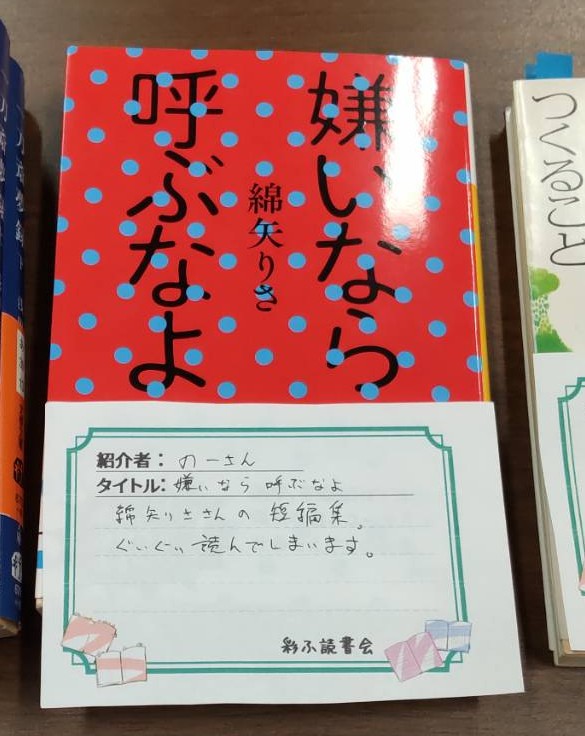 嫌いなら
呼ぶなよ
綿矢りさ
紹介者: のーさん
タイトル: 嫌いなら 呼ぶなよ
綿矢りささんの 短編集。
ぐいぐい 読んでしまいます。
彩ふ読書会
つくること